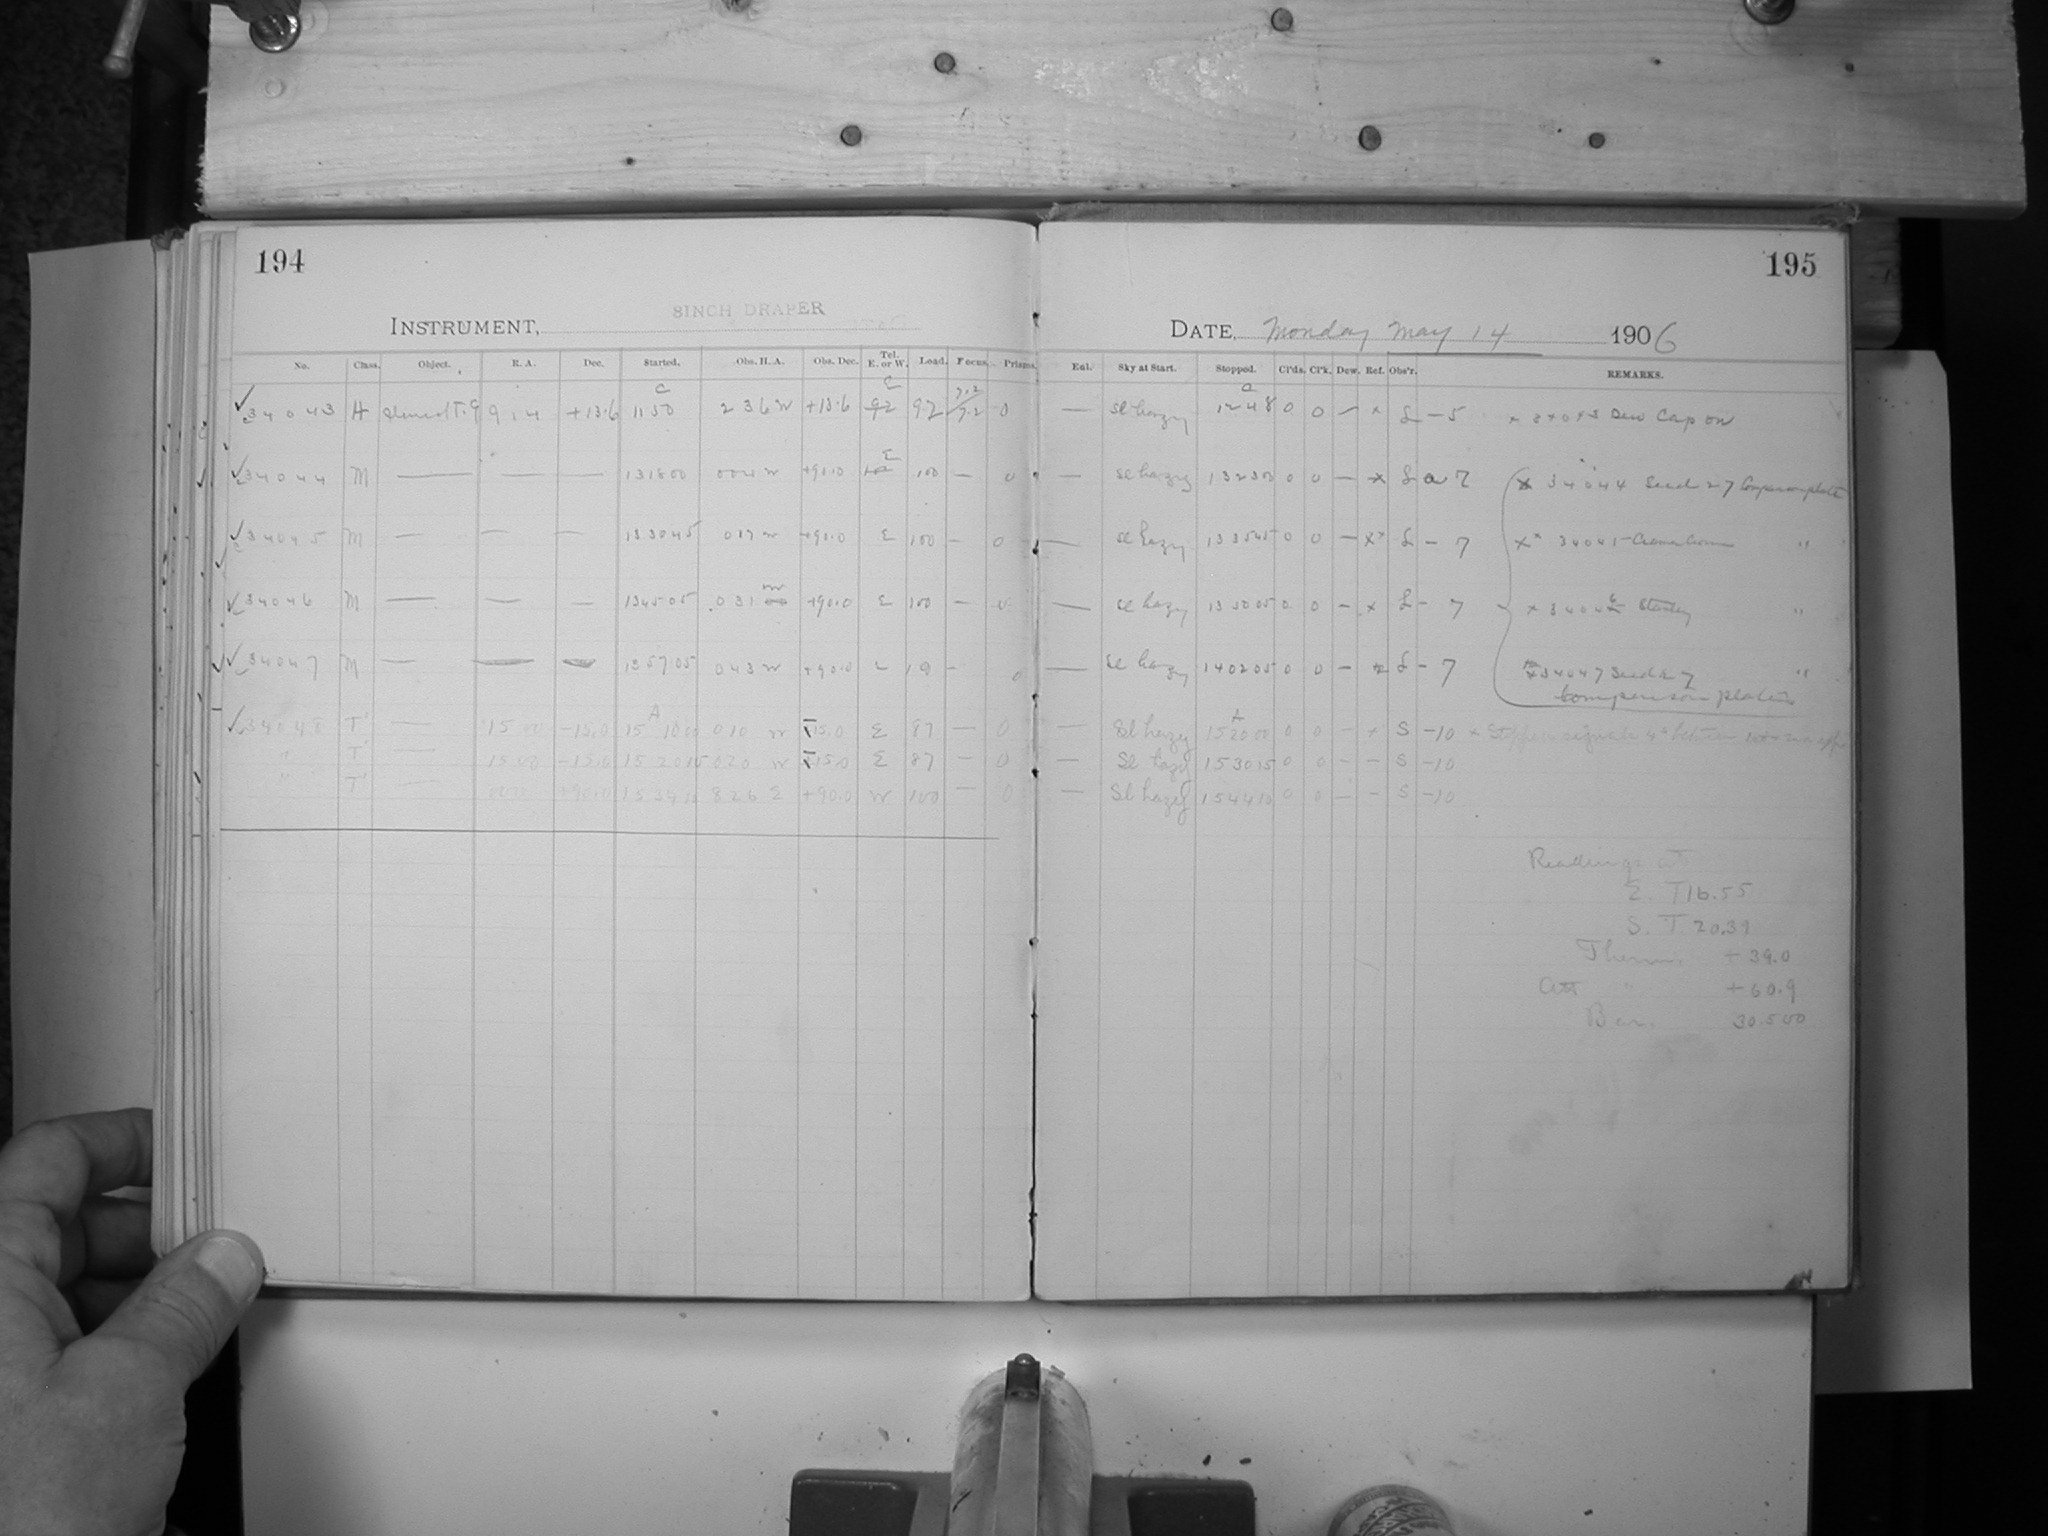 194
195
8INCH DRAPER
INSTRUMENT,
DATE, Monday May 14 1906
No. Class. Object. R. A. Dec. Started. Obs. H. A. Obs. Dec. Tel. E. or W. Load. Focus. Prisms. Enl. Sky at Start. Stopped. Cl'ds. Cl'k. Dew. Ref. Obs'r. REMARKS.
34043 H 914 +13.6 1150 236 W +13.6 E 92 7.2 0 — Sl hazy 1248 0 0 – × L –5 × 34043 Dew Cap on
34044 M — — — 131800 004 W +91.0 E 100 — 0 — Sl hazy 132300 0 0 — × L 7 × 34044 Seed 27 Comparison plate
34045 M — — — 133045 017 W +91.0 E 100 – 0 — Sl hazy 133545 0 0 — ×× L – 7 ×× 34045 Cramer Crown "
34046 M — — — 134505 031 W +90.0 E 100 – 0 — Sl hazy 135005 0 0 – × L – 7 × 34046 Stanley "
34047 M — — — 135705 043 W +90.0 – 0 — Sl hazy 140205 0 0 – L – 7 34047 Seed 27 "
Comparison plates
34048 T' — 1500 –15.0 151000 010 W –15.0 E 87 — 0 — Sl hazy 152000 0 0 – × S –10
" T' — 1500 –15.0 152015 020 W –15.0 E 87 – 0 — Sl hazy 153015 0 0 – – S –10
" T' — +90.0 153410 826 E +90.0 W 100 — 0 — Sl hazy 154410 0 0 – – S –10
Readings at
E. T 16.55
S. T. 20.39
Therm. +39.0
Att " +60.9
Bar. 30.500